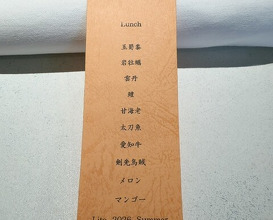 Lunch
玉蜀黍
岩牡蠣
雲丹
鰹
甘海老
太刀魚
愛知牛
剣先烏賊
メロン
マンゴー
2026 Summer